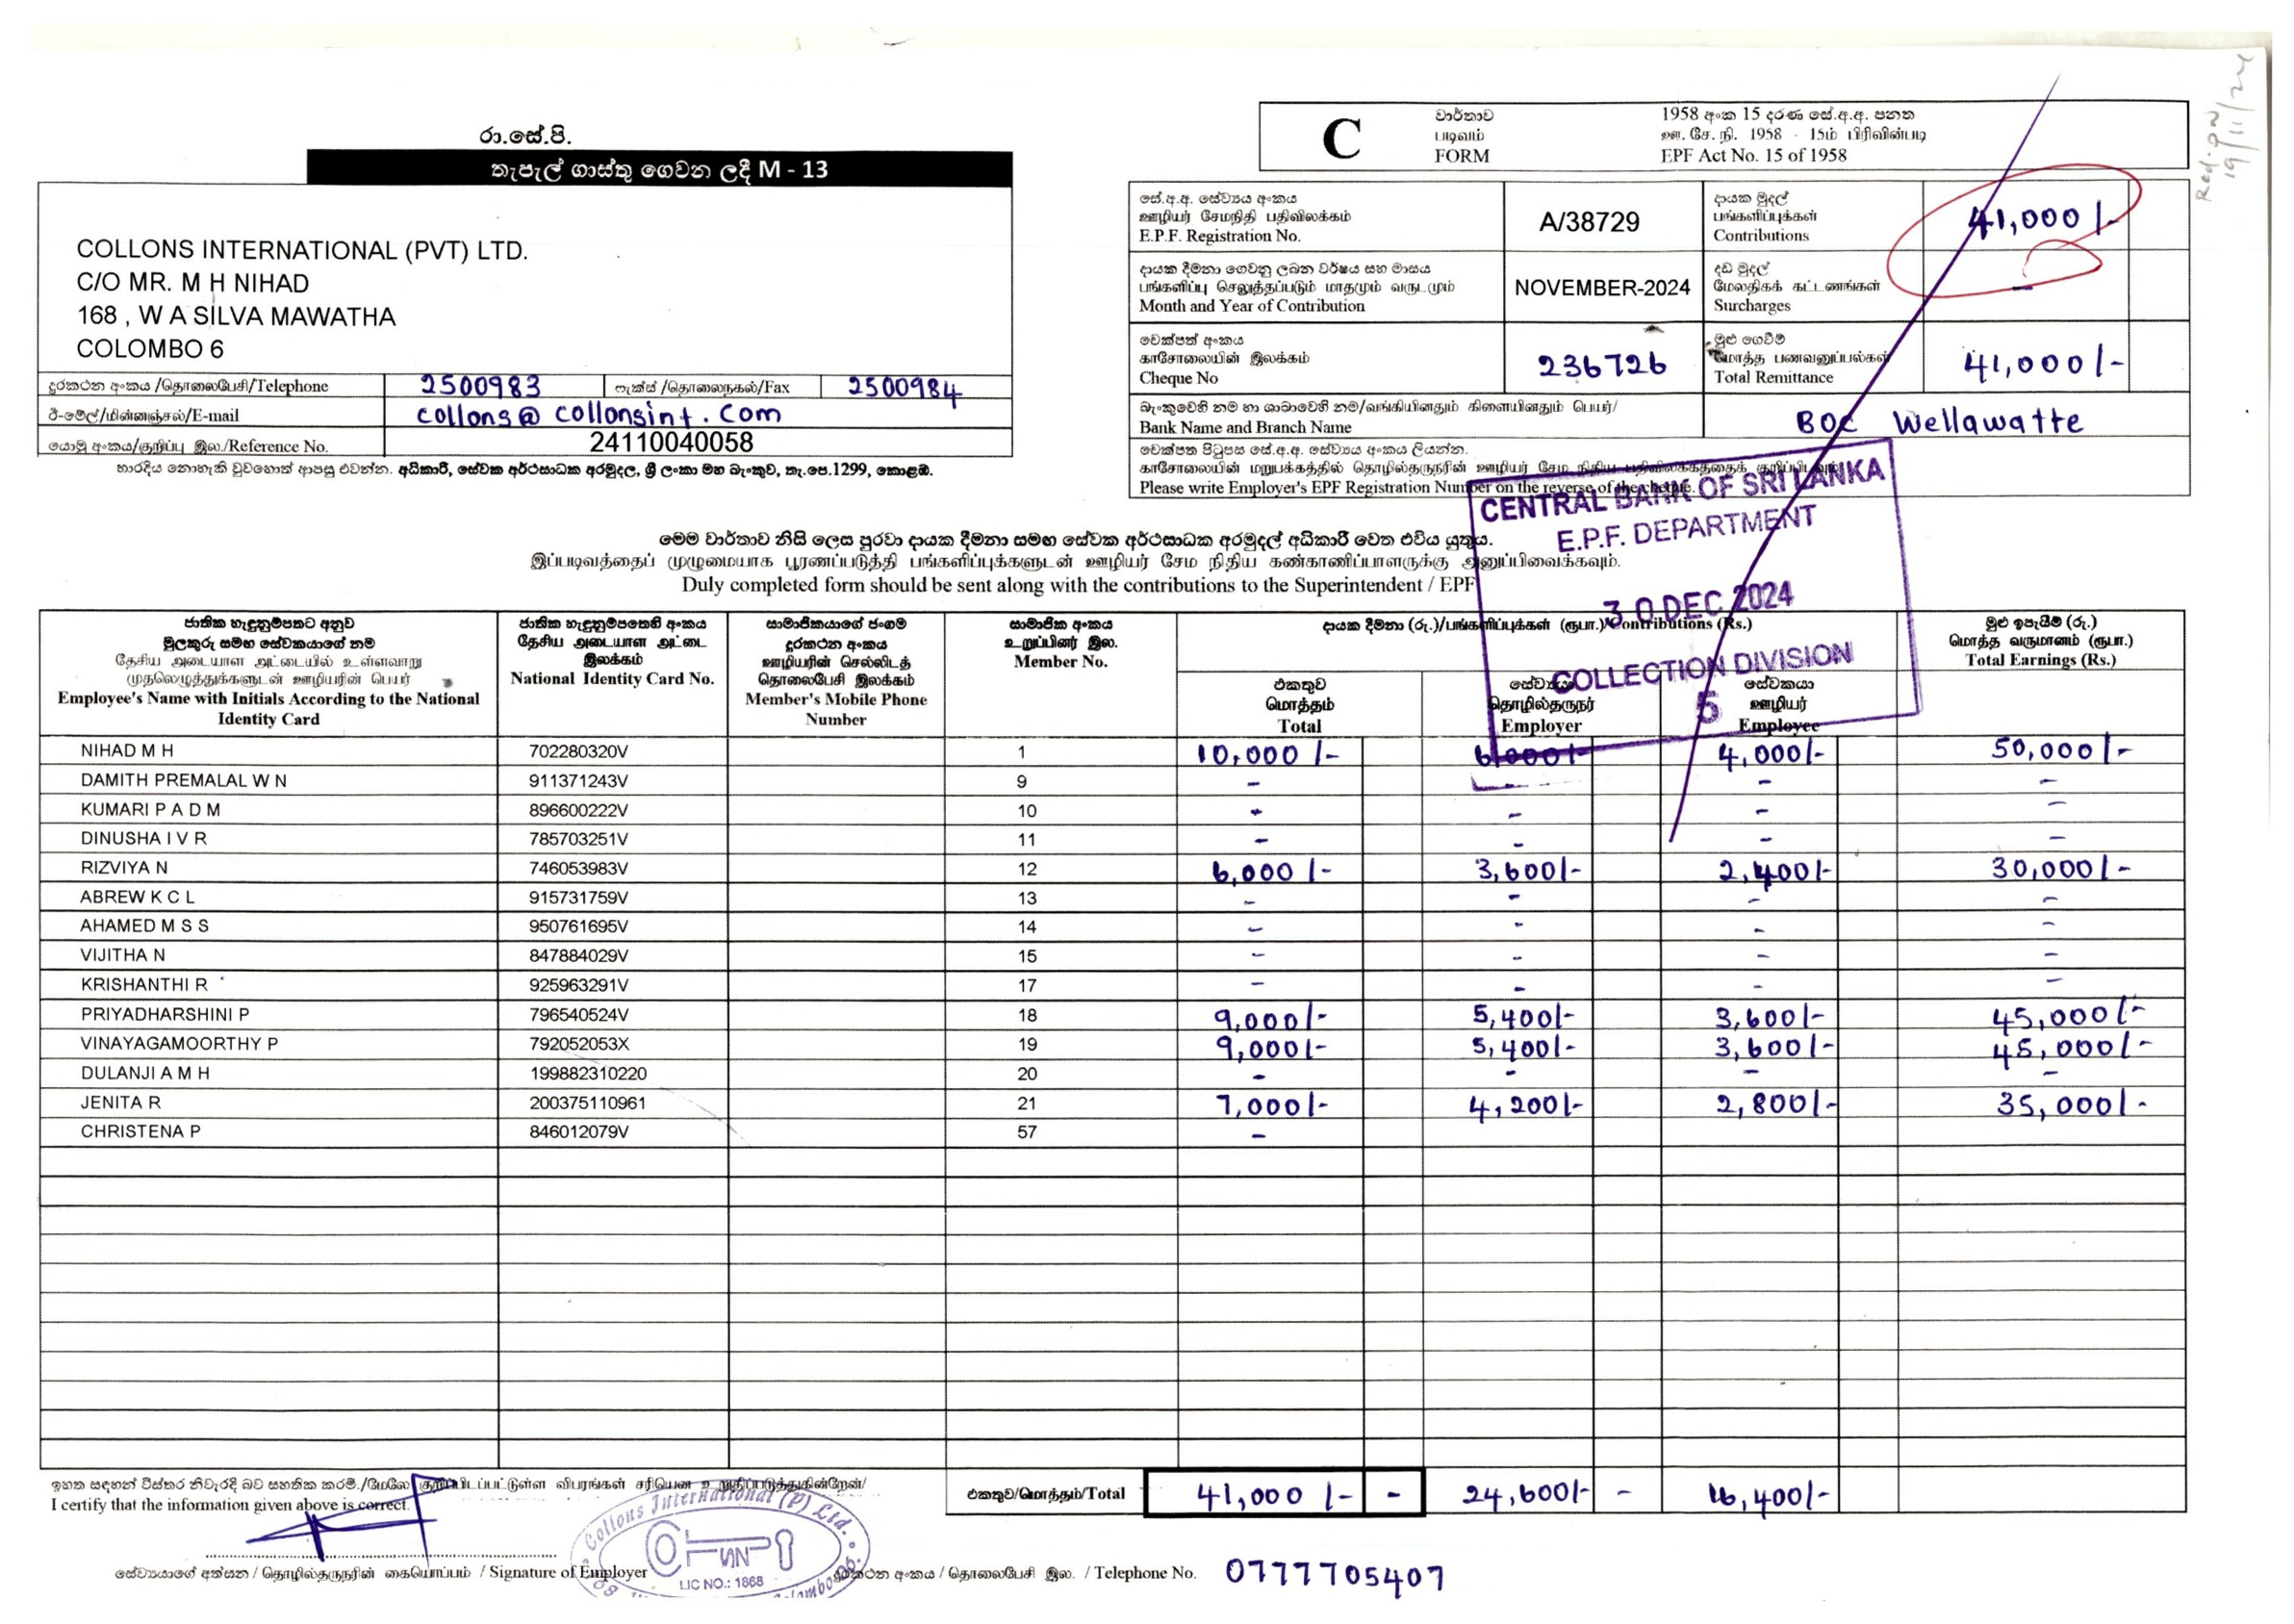 රා.සේ.පි.
තැපැල් ගාස්තු ගෙවන ලදී M - 13
COLLONS INTERNATIONAL (PVT) LTD.
C/O MR. M H NIHAD
168 , W A SILVA MAWATHA
COLOMBO 6
දුරකථන අංකය /தொலைபேசி/Telephone 2500983 ෆැක්ස් /தொலைநகல்/Fax 2500984
ඊ-මේල්/மின்னஞ்சல்/E-mail collons@collonsint.com
යොමු අංකය/குறிப்பு இல./Reference No. 24110040058
භාරදිය නොහැකි වුවහොත් ආපසු එවන්න. අධිකාරී, සේවක අර්ථසාධක අරමුදල, ශ්‍රී ලංකා මහ බැංකුව, තැ.පෙ.1299, කොළඹ.
C
වාර්තාව
படிவம்
FORM
1958 අංක 15 දරණ සේ.අ.අ. පනත
ஊ. சே. நி. 1958 - 15ம் பிரிவின்படி
EPF Act No. 15 of 1958
19/11/24
සේ.අ.අ. සේව්‍යය අංකය
ஊழியர் சேமநிதி பதிவிலக்கம்
E.P.F. Registration No. A/38729
දායක මුදල්
பங்களிப்புக்கள்
Contributions 41,000/-
දායක දීමනා ගෙවනු ලබන වර්ෂය සහ මාසය
பங்களிப்பு செலுத்தப்படும் மாதமும் வருடமும்
Month and Year of Contribution NOVEMBER-2024
දඩ මුදල්
மேலதிகக் கட்டணங்கள்
Surcharges -
චෙක්පත් අංකය
காசோலையின் இலக்கம்
Cheque No 236726
මුළු ගෙවීම්
மொத்த பணவனுப்பல்கள்
Total Remittance 41,000/-
බැංකුවෙහි නම හා ශාඛාවෙහි නම/வங்கியினதும் கிளையினதும் பெயர்/
Bank Name and Branch Name BOC Wellawatte
චෙක්පත පිටුපස සේ.අ.අ. සේව්‍යය අංකය ලියන්න.
காசோலையின் மறுபக்கத்தில் தொழில்தருநரின் ஊழியர் சேம நிதிய பதிவிலக்கத்தைக் குறிப்பிடவும்
Please write Employer's EPF Registration Number on the reverse of the cheque.
CENTRAL BANK OF SRI LANKA
E.P.F. DEPARTMENT
30 DEC 2024
COLLECTION DIVISION
5
මෙම වාර්තාව නිසි ලෙස පුරවා දායක දීමනා සමඟ සේවක අර්ථසාධක අරමුදල් අධිකාරී වෙත එවිය යුතුය.
இப்படிவத்தைப் முழுமையாக பூரணப்படுத்தி பங்களிப்புக்களுடன் ஊழியர் சேம நிதிய கண்காணிப்பாளருக்கு அனுப்பிவைக்கவும்.
Duly completed form should be sent along with the contributions to the Superintendent / EPF
ජාතික හැඳුනුම්පතට අනුව
මුලකුරු සමඟ සේවකයාගේ නම
தேசிய அடையாள அட்டையில் உள்ளவாறு
முதலெழுத்துக்களுடன் ஊழியரின் பெயர்
Employee's Name with Initials According to the National
Identity Card
ජාතික හැඳුනුම්පතෙහි අංකය
தேசிய அடையாள அட்டை
இலக்கம்
National Identity Card No.
සාමාජිකයාගේ ජංගම
දුරකථන අංකය
ஊழியரின் செல்லிடத்
தொலைபேசி இலக்கம்
Member's Mobile Phone
Number
සාමාජික අංකය
உறுப்பினர் இல.
Member No.
දායක දීමනා (රු.)/பங்களிப்புக்கள் (ரூபா.)/Contributions (Rs.)
එකතුව
மொத்தம்
Total
සේව්‍යයා
தொழில்தருநர்
Employer
සේවකයා
ஊழியர்
Employee
මුළු ඉපැයීම් (රු.)
மொத்த வருமானம் (ரூபா.)
Total Earnings (Rs.)
NIHAD M H 702280320V 1 10,000/- 6,000/- 4,000/- 50,000/-
DAMITH PREMALAL W N 911371243V 9 - - - -
KUMARI P A D M 896600222V 10 - - - -
DINUSHA I V R 785703251V 11 - - - -
RIZVIYA N 746053983V 12 6,000/- 3,600/- 2,400/- 30,000/-
ABREW K C L 915731759V 13 - - - -
AHAMED M S S 950761695V 14 - - - -
VIJITHA N 847884029V 15 - - - -
KRISHANTHI R 925963291V 17 - - - -
PRIYADHARSHINI P 796540524V 18 9,000/- 5,400/- 3,600/- 45,000/-
VINAYAGAMOORTHY P 792052053X 19 9,000/- 5,400/- 3,600/- 45,000/-
DULANJI A M H 199882310220 20 - - - -
JENITA R 200375110961 21 7,000/- 4,200/- 2,800/- 35,000/-
CHRISTENA P 846012079V 57 -
ඉහත සඳහන් විස්තර නිවැරදි බව සහතික කරමි./மேலே குறிப்பிடப்பட்டுள்ள விபரங்கள் சரியென உறுதிப்படுத்துகின்றேன்/
I certify that the information given above is correct.
එකතුව/மொத்தம்/Total 41,000/- - 24,600/- - 16,400/-
Collons International (P) Ltd.
LIC NO.: 1868
සේව්‍යයාගේ අත්සන / தொழில்தருநரின் கையொப்பம் / Signature of Employer
දුරකථන අංකය / தொலைபேசி இல. / Telephone No. 0777705407